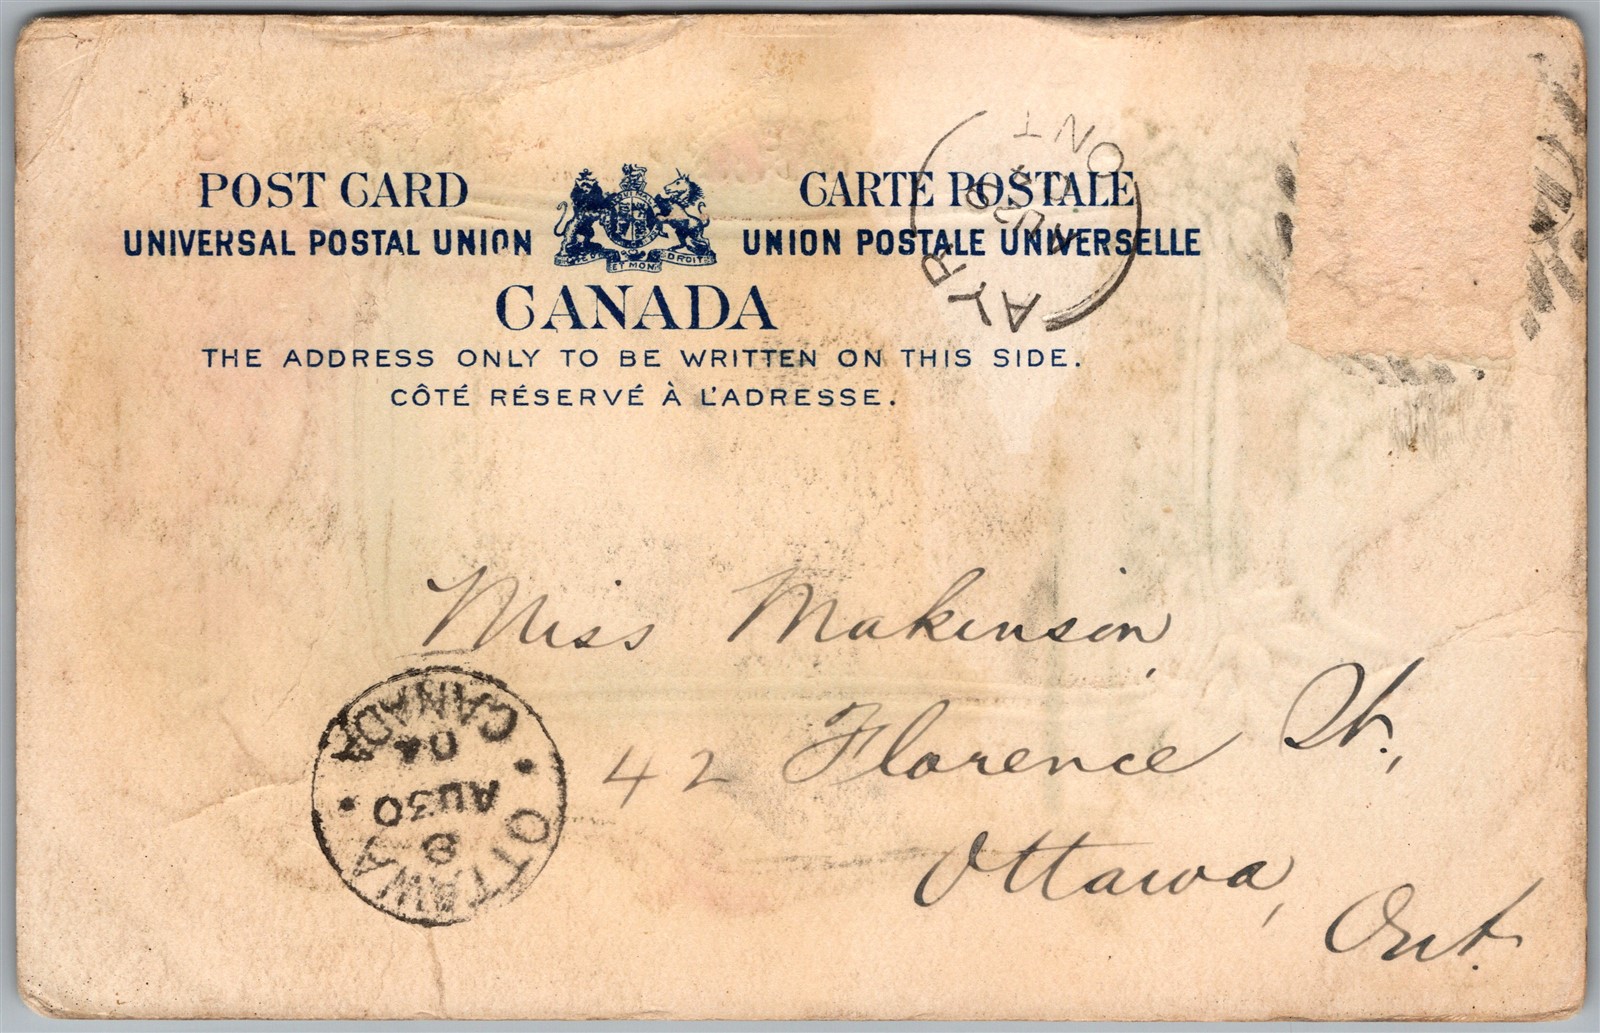 POST CARD
CARTE POSTALE
UNIVERSAL POSTAL UNION
UNION POSTALE UNIVERSELLE
DROIT
ET MON
CANADA
THE ADDRESS ONLY TO BE WRITTEN ON THIS SIDE.
CÔTÉ RÉSERVÉ À L'ADRESSE.
AYR
AU 29
ONT
Miss Makinson,
42 Florence St.,
Ottawa,
Ont.
OTTAWA
8
AU 30
04
CANADA